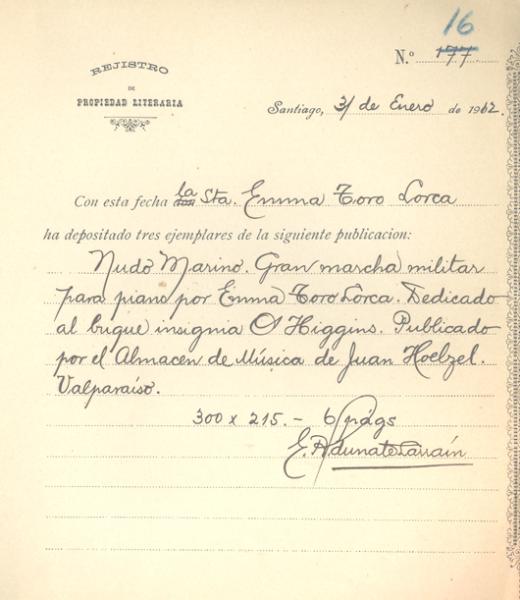 16
N.° 177
REJISTRO
DE
PROPIEDAD LITERARIA
Santiago, 31 de Enero de 1912.
Con esta fecha la Sta. Emma Toro Lorca
ha depositado tres ejemplares de la siguiente publicacion:
Nudo Marino. Gran marcha militar
para piano por Emma Toro Lorca. Dedicado
al buque insignia O'Higgins. Publicado
por el Almacen de Música de Juan Hoelzel.
Valparaíso.
300 x 215.- 6 págs
E. Aldunate Larraín